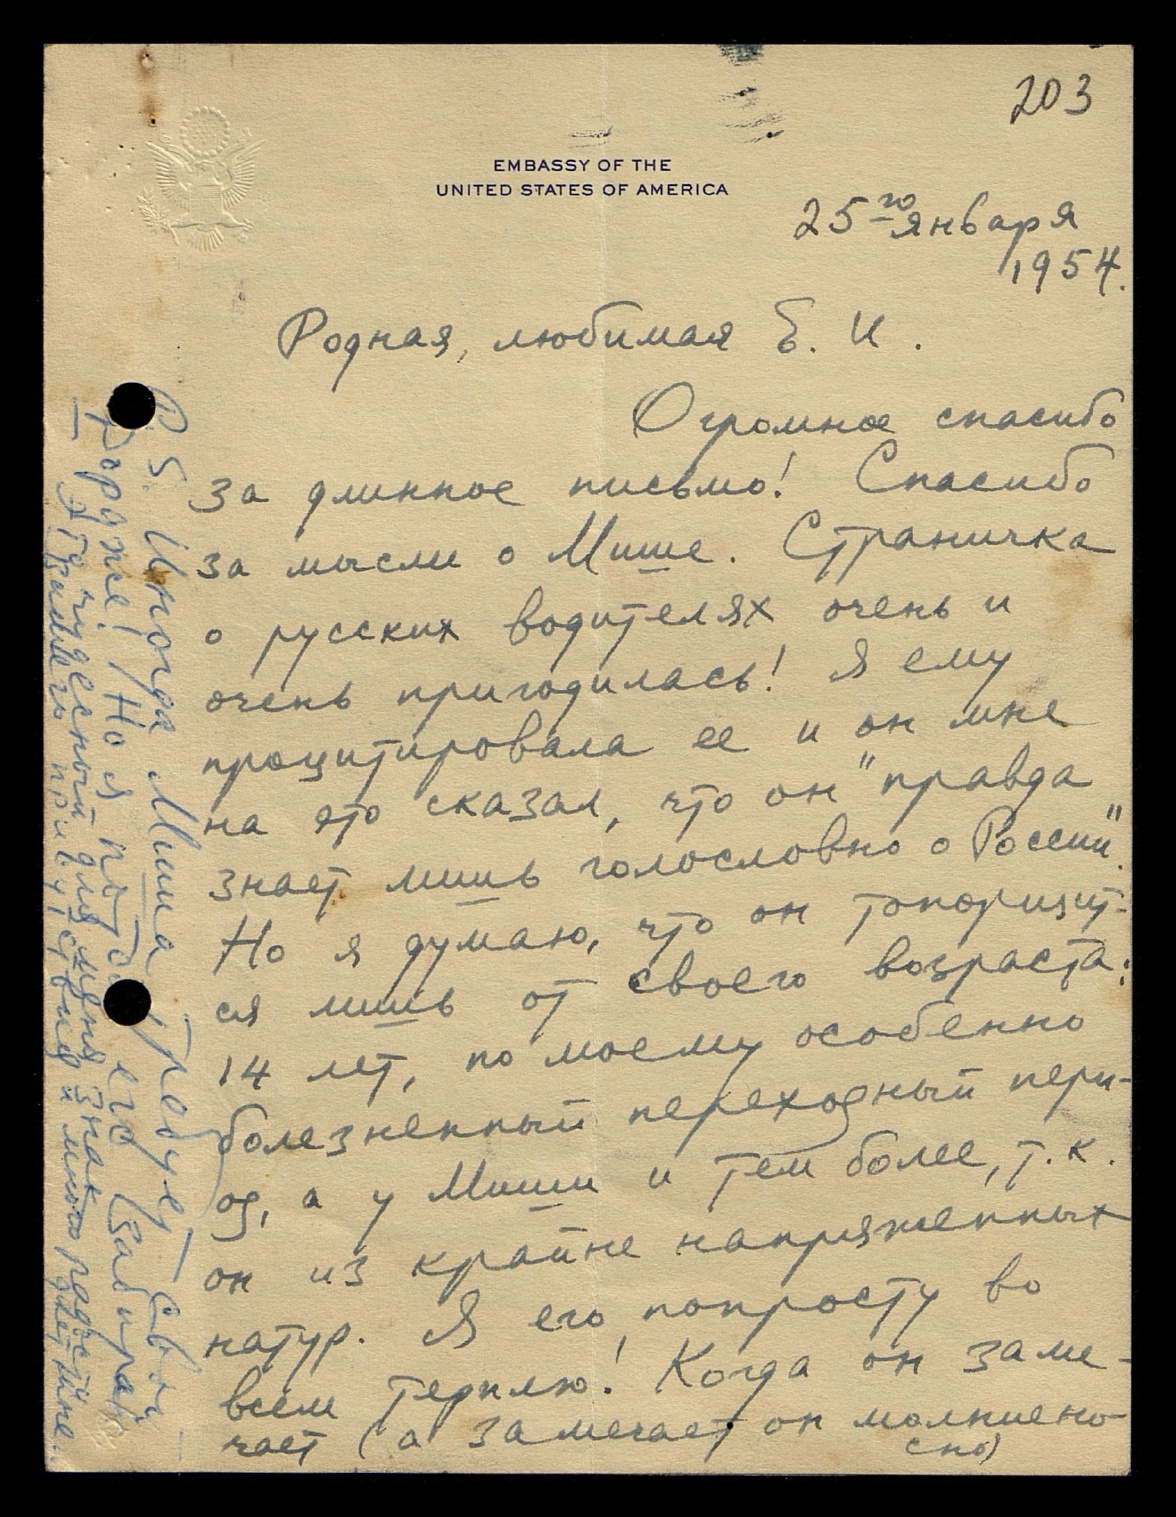 203
EMBASSY OF THE
UNITED STATES OF AMERICA
25го января
1954.
Родная, любимая Е. И.
Огромное спасибо
за длинное письмо! Спасибо
за мысли о Мише. Страничка
о русских водителях очень и
очень пригодилась! Я ему
процитировала ее и он мне
на это сказал, что он "правда
знает лишь голословно о России".
Но я думаю, что он топорщит-
ся лишь от своего возраста:
14 лет, по моему особенно
болезненный переходный пери-
од, а у Миши и тем более, т.к.
он из крайне напряженных
натур. Я его попросту во
всем терплю! Когда он заме-
чает (а замечает он молниено-
сно)
P.S. Иногда Миша требует
дорже! Но я его забирай
– Это чудесный для меня знак
Вашего присутствия и много радости
дает мне.